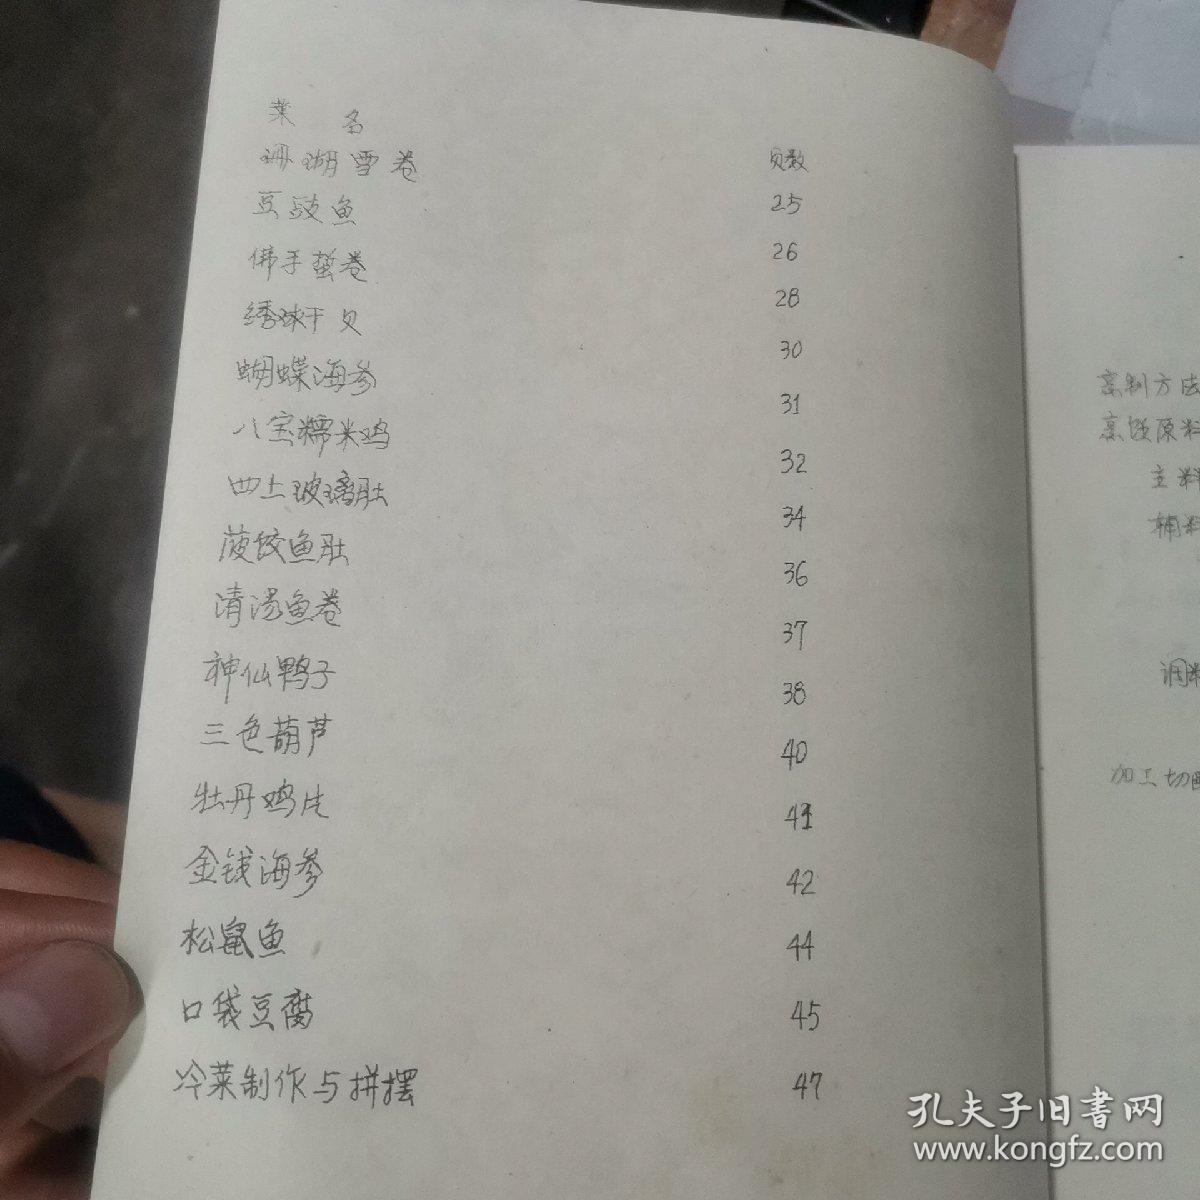 菜 名 页数
珊瑚雪卷 25
豆豉鱼 26
佛手蜇卷 28
绣球干贝 30
蝴蝶海参 31
八宝糯米鸡 32
四上玻璃肚 34
菠饺鱼肚 36
清汤鱼卷 37
神仙鸭子 38
三色葫芦 40
牡丹鸡片 41
金钱海参 42
松鼠鱼 44
口袋豆腐 45
冷菜制作与拼摆 47
烹制方法
烹饪原料
主料
辅料
调料
加工切配
孔夫子旧书网
www.kongfz.com